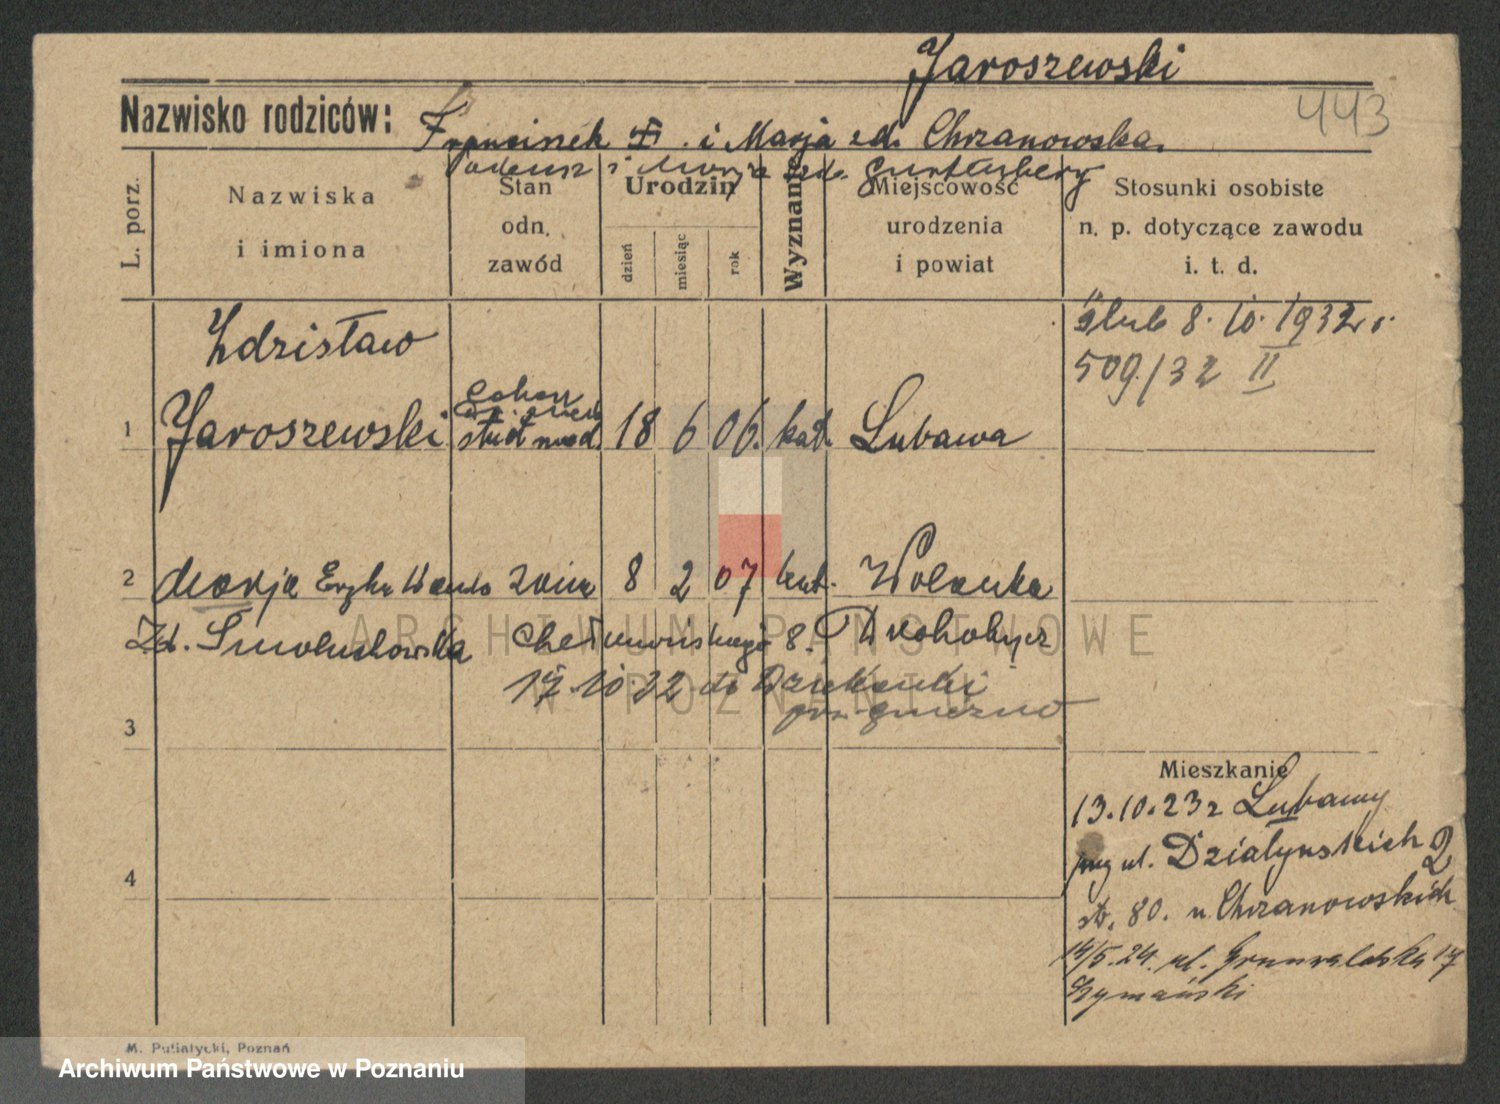 Jaroszewski
443
Nazwisko rodziców: Franciszek i Marja zd. Chrzanowska.
Tadeusz i Marja zd.
L. porz.
Nazwiska i imiona
Stan odn. zawód
Urodzin
dzień
miesiąc
rok
Wyznanie
Miejscowość urodzenia i powiat
Stosunki osobiste n. p. dotyczące zawodu i. t. d.
Zdzisław
ślub 8. 10. 1932 r.
509/32 II
1 Jaroszewski stud med. 18 6 06. kat. Lubawa
2 Marja Wanda żona 8 2 07 kat. Wolanka
Zd. Smoluchowska Chełmońskiego 8. Drohobycz
17.10.32 do Dziekanki
pow. Gniezno
3
Mieszkanie
13.10.23 z Lubawy
ul. Działyńskich 2
str. 80. u Chrzanowskich
4
14/5.24. ul. Grunwaldzka 17
Szymański
M. Putiatycki, Poznań
ARCHIWUM PAŃSTWOWE
W POZNANIU
Archiwum Państwowe w Poznaniu